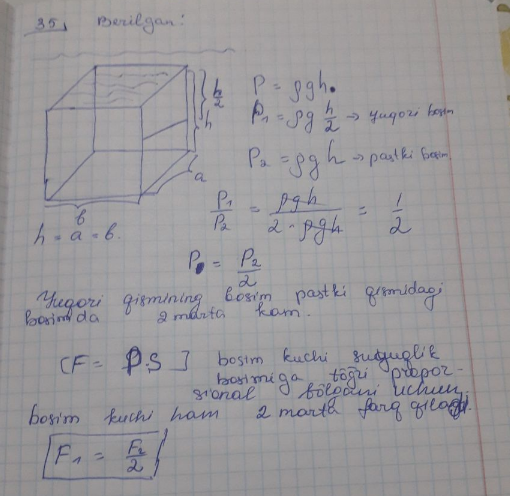 35. Berilgan:
h/2
h
a
b
h = a = b.
P = ρgh.
P₁ = ρg h/2 → yuqori bosim
P₂ = ρgh → pastki bosim
P₁/P₂ = ρgh/(2·ρgh) = 1/2
P. = P₂/2
Yuqori qismining bosim pastki qismidagi
bosimda 2 marta kam.
[F = P.S] bosim kuchi suyuqlik
bosimiga tõğri propor-
sional bõlgani uchun
bosim kuchi ham 2 marta farq qiladi.
F₁ = F₂/2